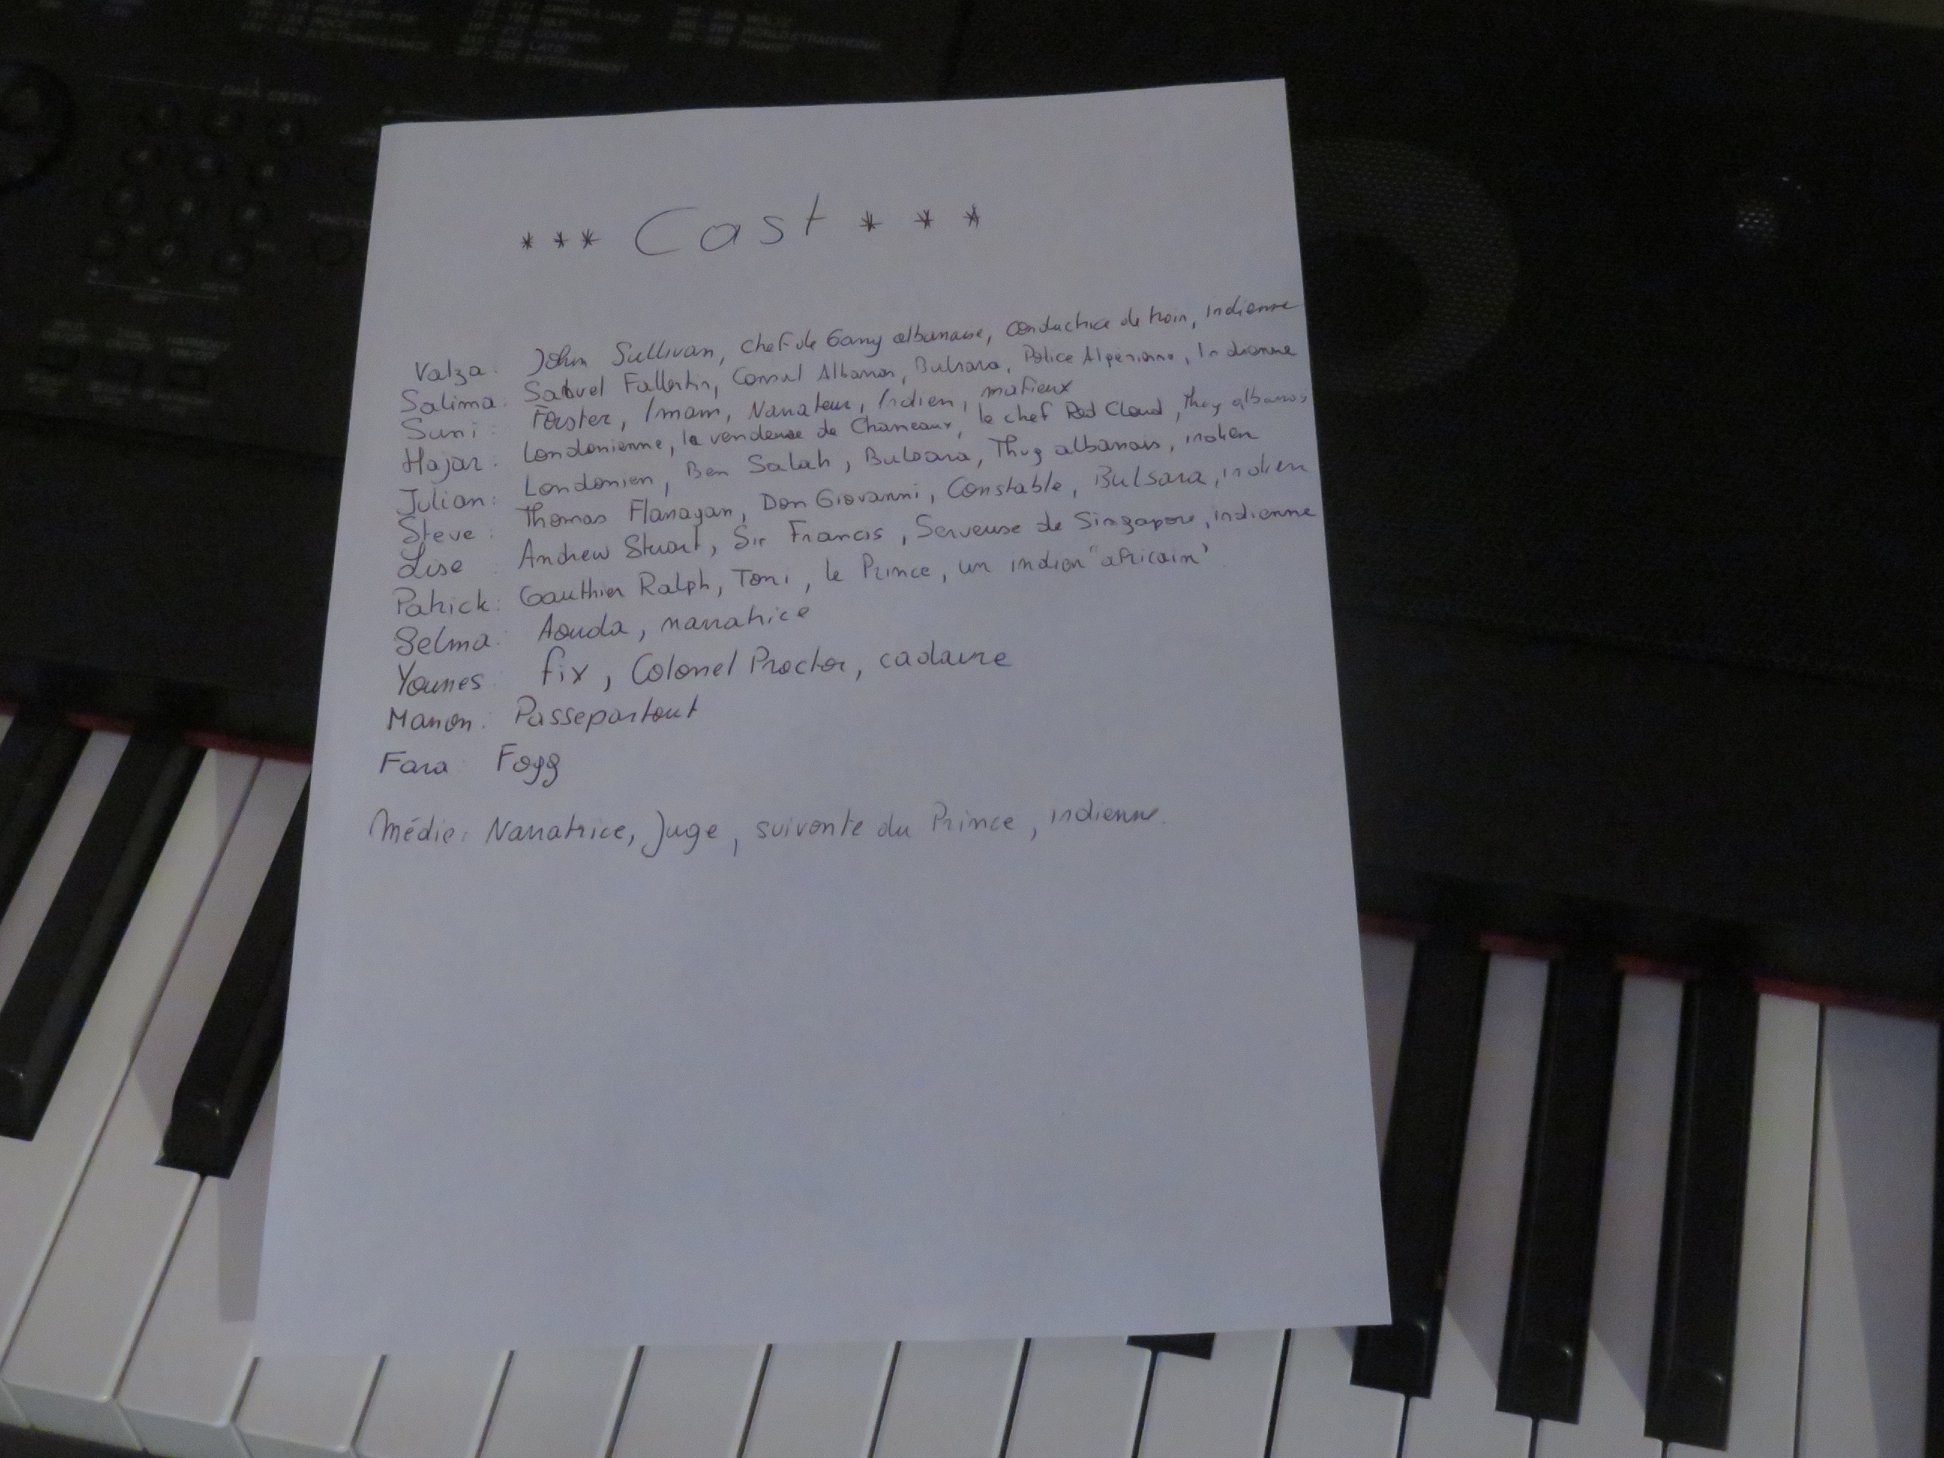 DATA ENTRY
*** Cast ***
Valza: John Sullivan, chef de Gang albanaise, conductrice de train, indienne
Salima: Samuel Fallentin, Consul Albanon, Bulsara, Police Algérienne, Indienne
Suni: Forster, Imam, Narrateur, Indien, mafieux
Hajar: Londonienne, la vendeuse de Chameaux, le chef Red Cloud, Thug albanais
Julian: Londonien, Ben Salah, Bulsara, Thug albanais, indien
Steve: Thomas Flanagan, Don Giovanni, Constable, Bulsara, indien
Lise Andrew Stuart, Sir Francis, Serveuse de Singapore, indienne
Patrick: Gauthier Ralph, Toni, le Prince, un indien "africain"
Selma: Aouda, narratrice
Younes fix, Colonel Proctor, cadavre
Manon: Passepartout
Fara Fogg
Médie: Narratrice, Juge, suivante du Prince, indienne.